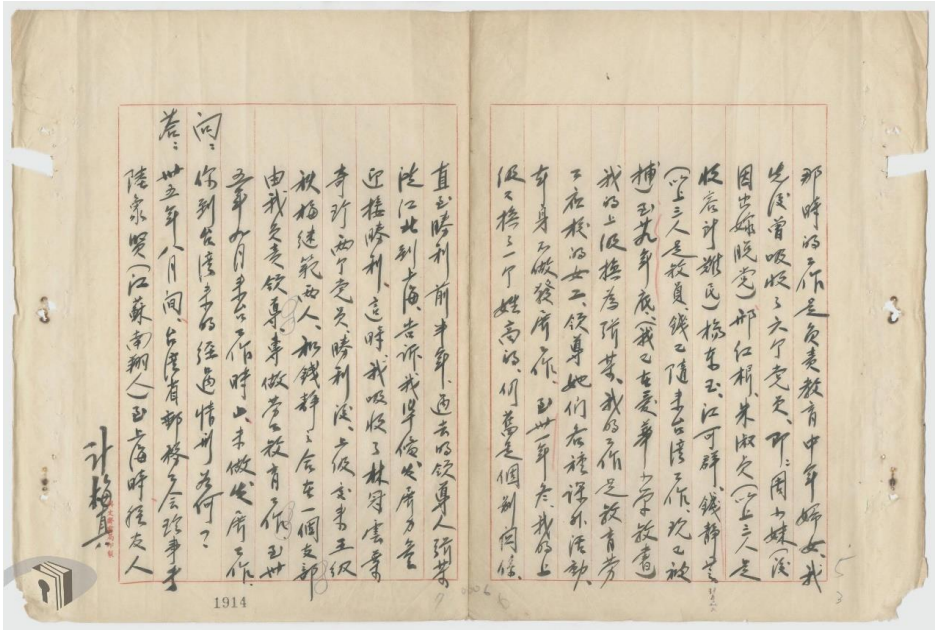 那時的工作是負責教育中年婦女、我
先後曾吸收了六个党員、即：周小妹（後
因出嫁脫党）邢紅根、朱淑貞（以上三人是
收容計难民）楊東玉、江可群、錢靜芝
（以上三人是教員、錢已隨來台湾工作、现已被
捕）至廿九年底、（我已在爱華小学教書
我的上級換為張某、我的工作是教育劳
工夜校的女工、領導她們各種課外活動、
本身不做發展工作、至卅一年冬、我的上
級又換了一个姓高的、仍舊是個别関係、
直至勝利前半年、过去的領導人張某
從江北到上海、告訴我準備发展力量
迎接勝利、這時我吸收了林冠雲葉
奇珍兩个党员、勝利後、上級交來王級
秋梅建範兩人、和錢靜三合在一個支部
由我负责領導專做劳工教育工作、至卅
五年九月來台工作時止、未做发展工作、
問：你到台湾來的經過情形為何？
答：卅五年八月间、台湾省郵務工会理事
陸象賢（江蘇南翔人）至上海時經友人
计梅真
1914